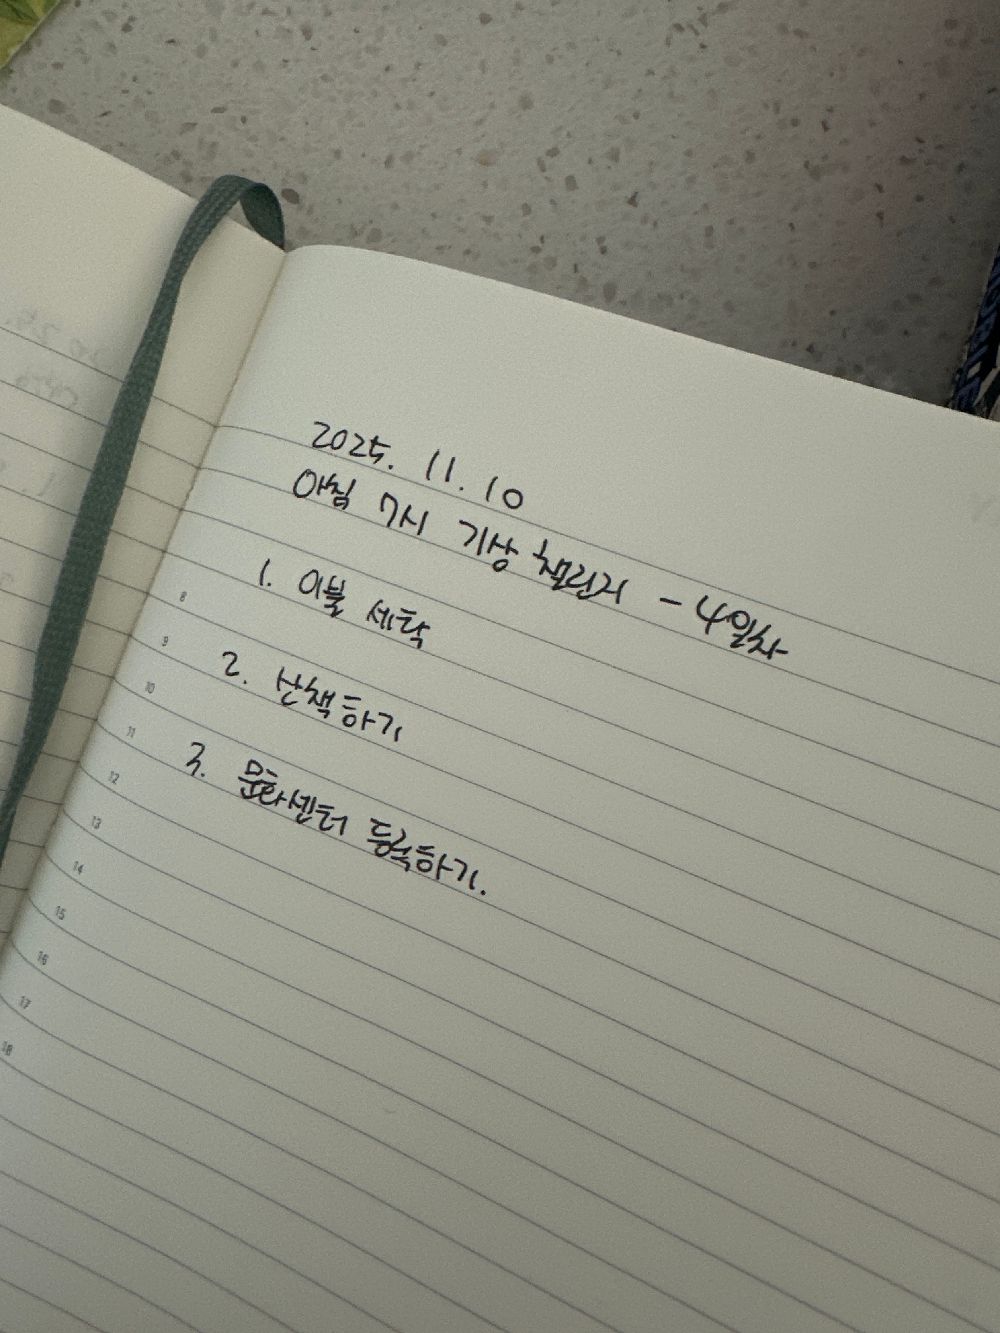 2025. 11. 10
아침 7시 기상 챌린지 - 4일차
1. 이불 세탁
2. 산책하기
3. 문화센터 등록하기.
8
9
10
11
12
13
14
15
16
17
18